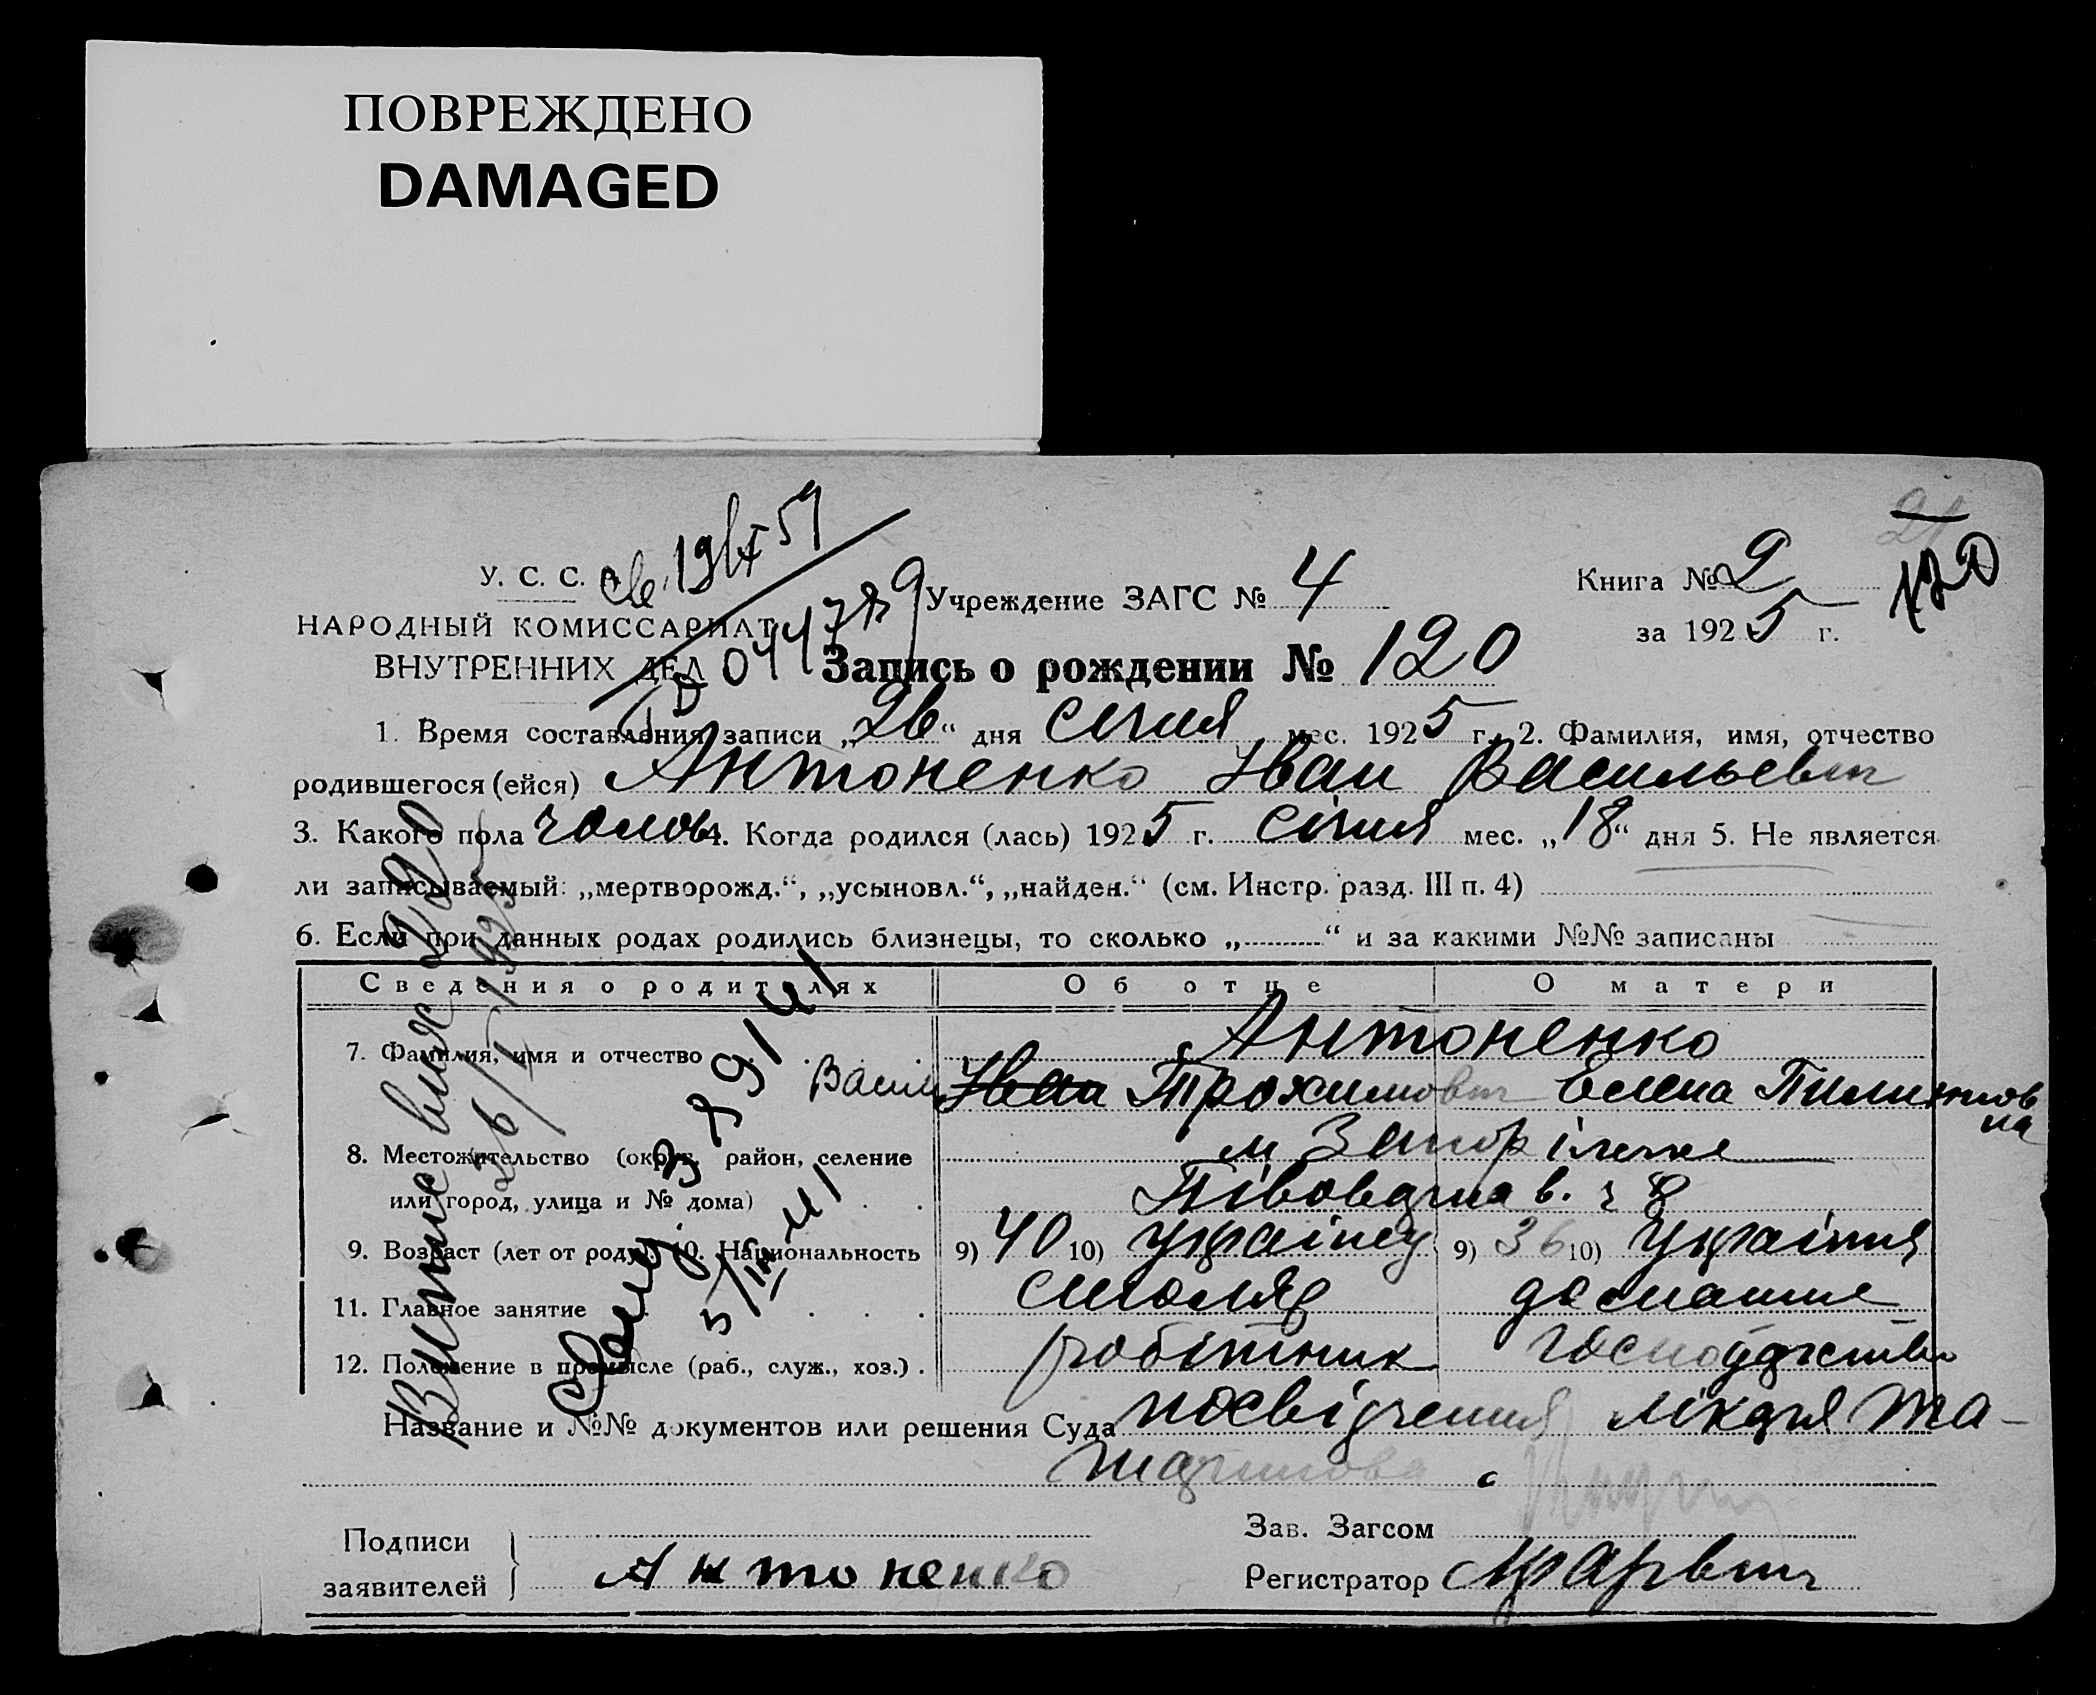 ПОВРЕЖДЕНО
DAMAGED
св. 19/I 59
21
У. С. С. Р.
Учреждение ЗАГС № 4
Книга № 2
120
НАРОДНЫЙ КОМИССАРИАТ
за 1925 г.
ВНУТРЕННИХ ДЕЛ
Запись о рождении № 120
1. Время составления записи „26“ дня січня мес. 1925 г. 2. Фамилия, имя, отчество
родившегося (ейся) Антоненко Иван Васильевич
3. Какого пола чолов. 4. Когда родился (лась) 1925 г. січня мес. „18“ дня 5. Не является
ли записываемый: „мертворожд.“, „усыновл.“, „найден.“ (см. Инстр. разд. III п. 4)
6. Если при данных родах родились близнецы, то сколько „..........“ и за какими №№ записаны
Сведения о родителях Об отце О матери
Антоненко
7. Фамилия, имя и отчество
Васил Иван Трохимович Елена Пилипов
на
8. Местожительство (округ, район, селение
м Запоріжже
или город, улица и № дома)
в. ч 8
9. Возраст (лет от роду) 10. Национальность 9) 40 10) українец 9) 36 10) українка
11. Главное занятие столяр домашне
12. Положение в промысле (раб., служ., хоз.) робітник господарство
Название и №№ документов или решения Суда посвідчення лікаря та-
Подписи
заявителей
Антоненко
Зав. Загсом
Регистратор
26/I 1925
5/III 41